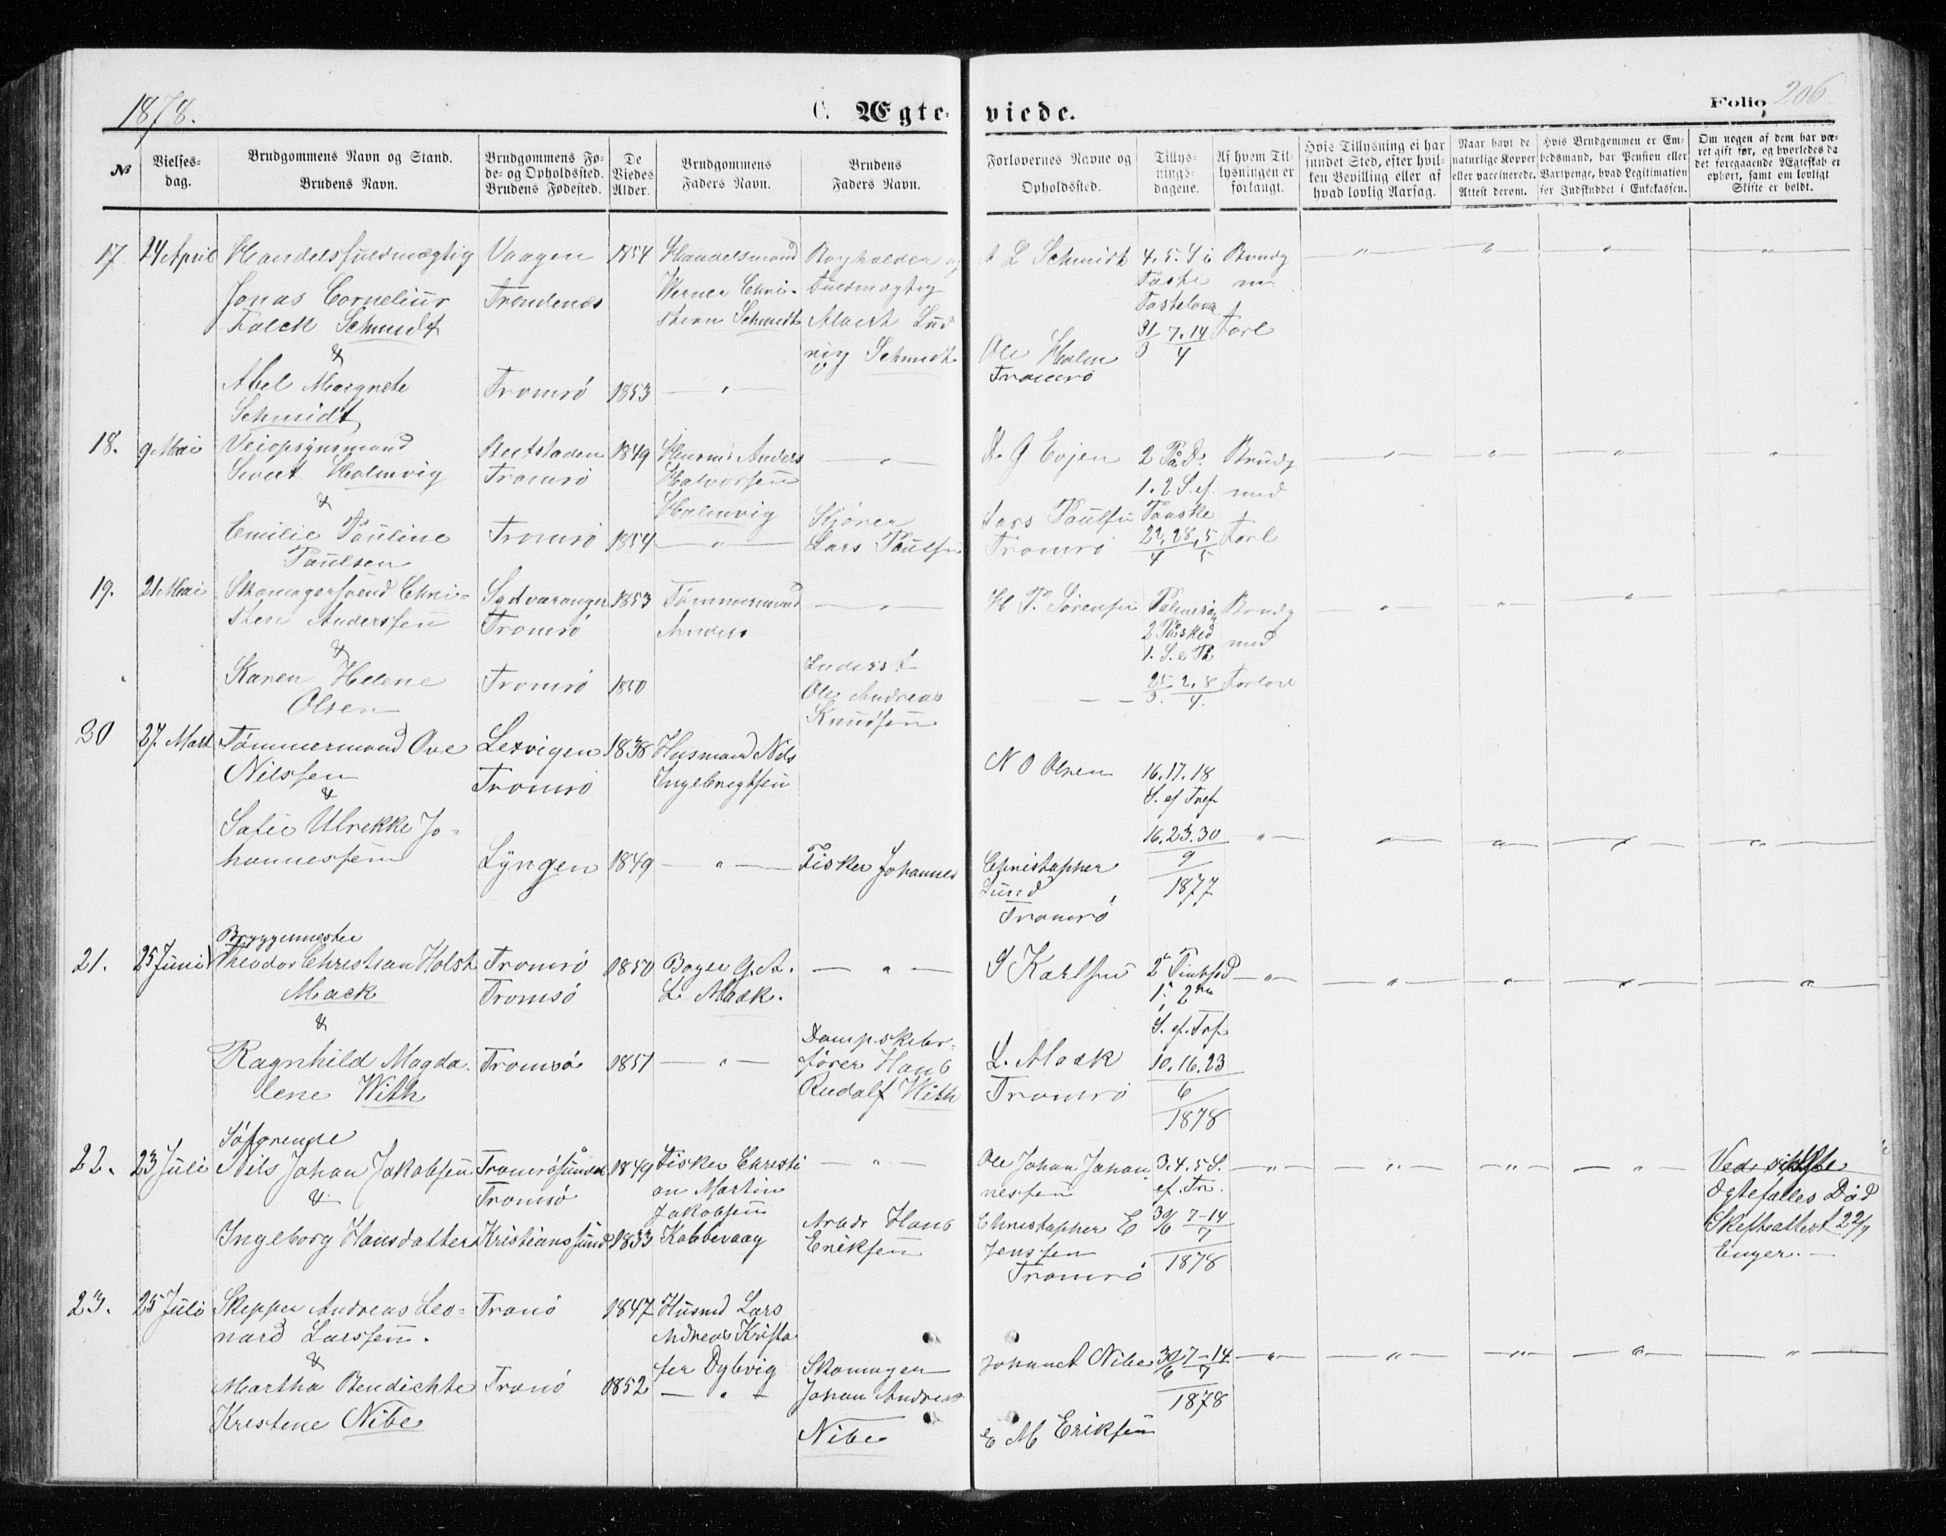 1878.
C. Ægteviede.
Folio 206
№
Vielses-
dag.
Brudgommens Navn og Stand.
Brudens Navn.
Brudgommens Fø-
de- og Opholdssted.
Brudens Fødested.
De
Viedes
Alder.
Brudgommens
Faders Navn.
Brudens
Faders Navn.
Forlovernes Navne og
Opholdssted.
Tillys-
nings-
dagene.
Af hvem Til-
lysningen er
forlangt.
Hvis Tillysning ei har
fundet Sted, efter hvil-
ken Bevilling eller af
hvad lovlig Aarsag.
Naar havt de
naturlige Kopper
eller vaccinerede.
Attest derom.
Hvis Brudgommen er Em-
bedsmand, har Pension eller
Vartpenge, hvad Legitimation
for Indskuddet i Enkekassen.
Om nogen af dem har væ-
ret gift før, og hvorledes da
det foregaaende Ægteskab er
ophørt, samt om lovligt
Skifte er holdt.
17 24 April Handelsfuldmægtig
Jonas Cornelius
Falck Schmidt
&
Abel Margrete
Schmidt
Vaagen
Trondenæs
Tromsø
1854
1853
Handelsmand
Werner Chri-
stian Schmidt
Fuldmægtig
Albert Lud
vig Schmidt
A L Schmidt
Ole Holm
Tromsø
4. 5. 4 i
Faste
Fastelavn
31/3 7. 14/4
Brudg
m
Forl
18. 9 Mai
Veiopsynsmand
Holmvig
&
Emilie Pauline
Paulsen
Tromsø
Tromsø
1849
1854
Husm: Anders
Halvorsen
Holmvig
Lars Paulsen
G Evjen
Lars Paulsen
Tromsø
2 Paa D:
1. 2 S. ef.
Paaske
22, 28/4, 5/5
Brudg
med
Forl
19. 21 Mai
Skomagersvend Chri-
sten Anderssen
&
Karen Helene
Olsen
Sydvaranger
Tromsø
Tromsø
1853
1850
Tømmermand
Anders
Ole Andreas
Knudsen
H P. Sørensen
Palmesøn
2 Paasked
1. S. e P.
25/3. 2. 8/4.
Brudg
med
Forlov
20 27. Mart
Tømmermand Ove
Nilssen
&
Sofie Ulrekke Jo-
hannessen
Lexvigen
Tromsø
Lyngen
1838
1849
Husmand Nils
Ingebrigtsen
Fisker Johannes
N O Olsen
Christopher
Lund
Tromsø
16. 17. 18
S. ef Tref
16. 23. 30
9
1877
21. 25 Juni
Bryggemester
Theodor Christian Holst
Mack
&
Ragnhild Magda-
lene With
Tromsø
Tromsø
Tromsø
1850
1851
Bager G. A.
L. Mack.
Dampskibs-
fører Hans
Rudolf With
Karlsen
L. Mack
Tromsø
2 Pintsed
1. 2
S. ef. Tref
10. 16. 23
6
1878
22. 23 Juli
Søfarende
Nils Johan Jakobsen
&
Ingeborg Hansdatter
Tromsøsundet
Tromsø
Kristianssund
1849
1833
Fisker Christi
an Martin
Jakobsen
Kobbevaag
Arbdr Hans
Eriksen
Ole Johan Johan
nessen
Christopher E
Jenssen
Tromsø
3. 4. 5 S.
ef. Tr.
30/6 7-14/7
1878
Ved sidste
Ægtefælles Død
Skifteattest 22/7
23. 25 Juli
Skipper Andreas Leo-
nard Larssen.
&
Martha Bendichte
Kristene Nibe
Tranø
Tranø
1847
1852
Husmd Lars
Andreas Kristo
fer Dybvig
Skomager
Johan Andreas
Nibe
Johan A Nibe
E M Eriksen
30/6 7-14/7
1878